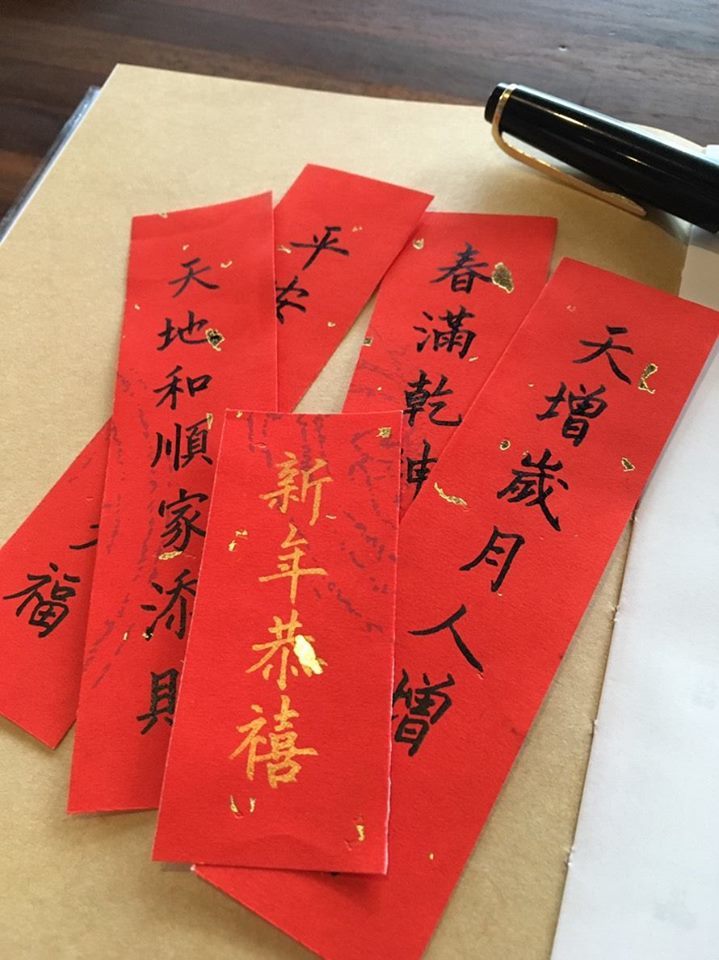 天地和順家添財
平安
福
新年恭禧
春滿乾坤
天增歲月人增